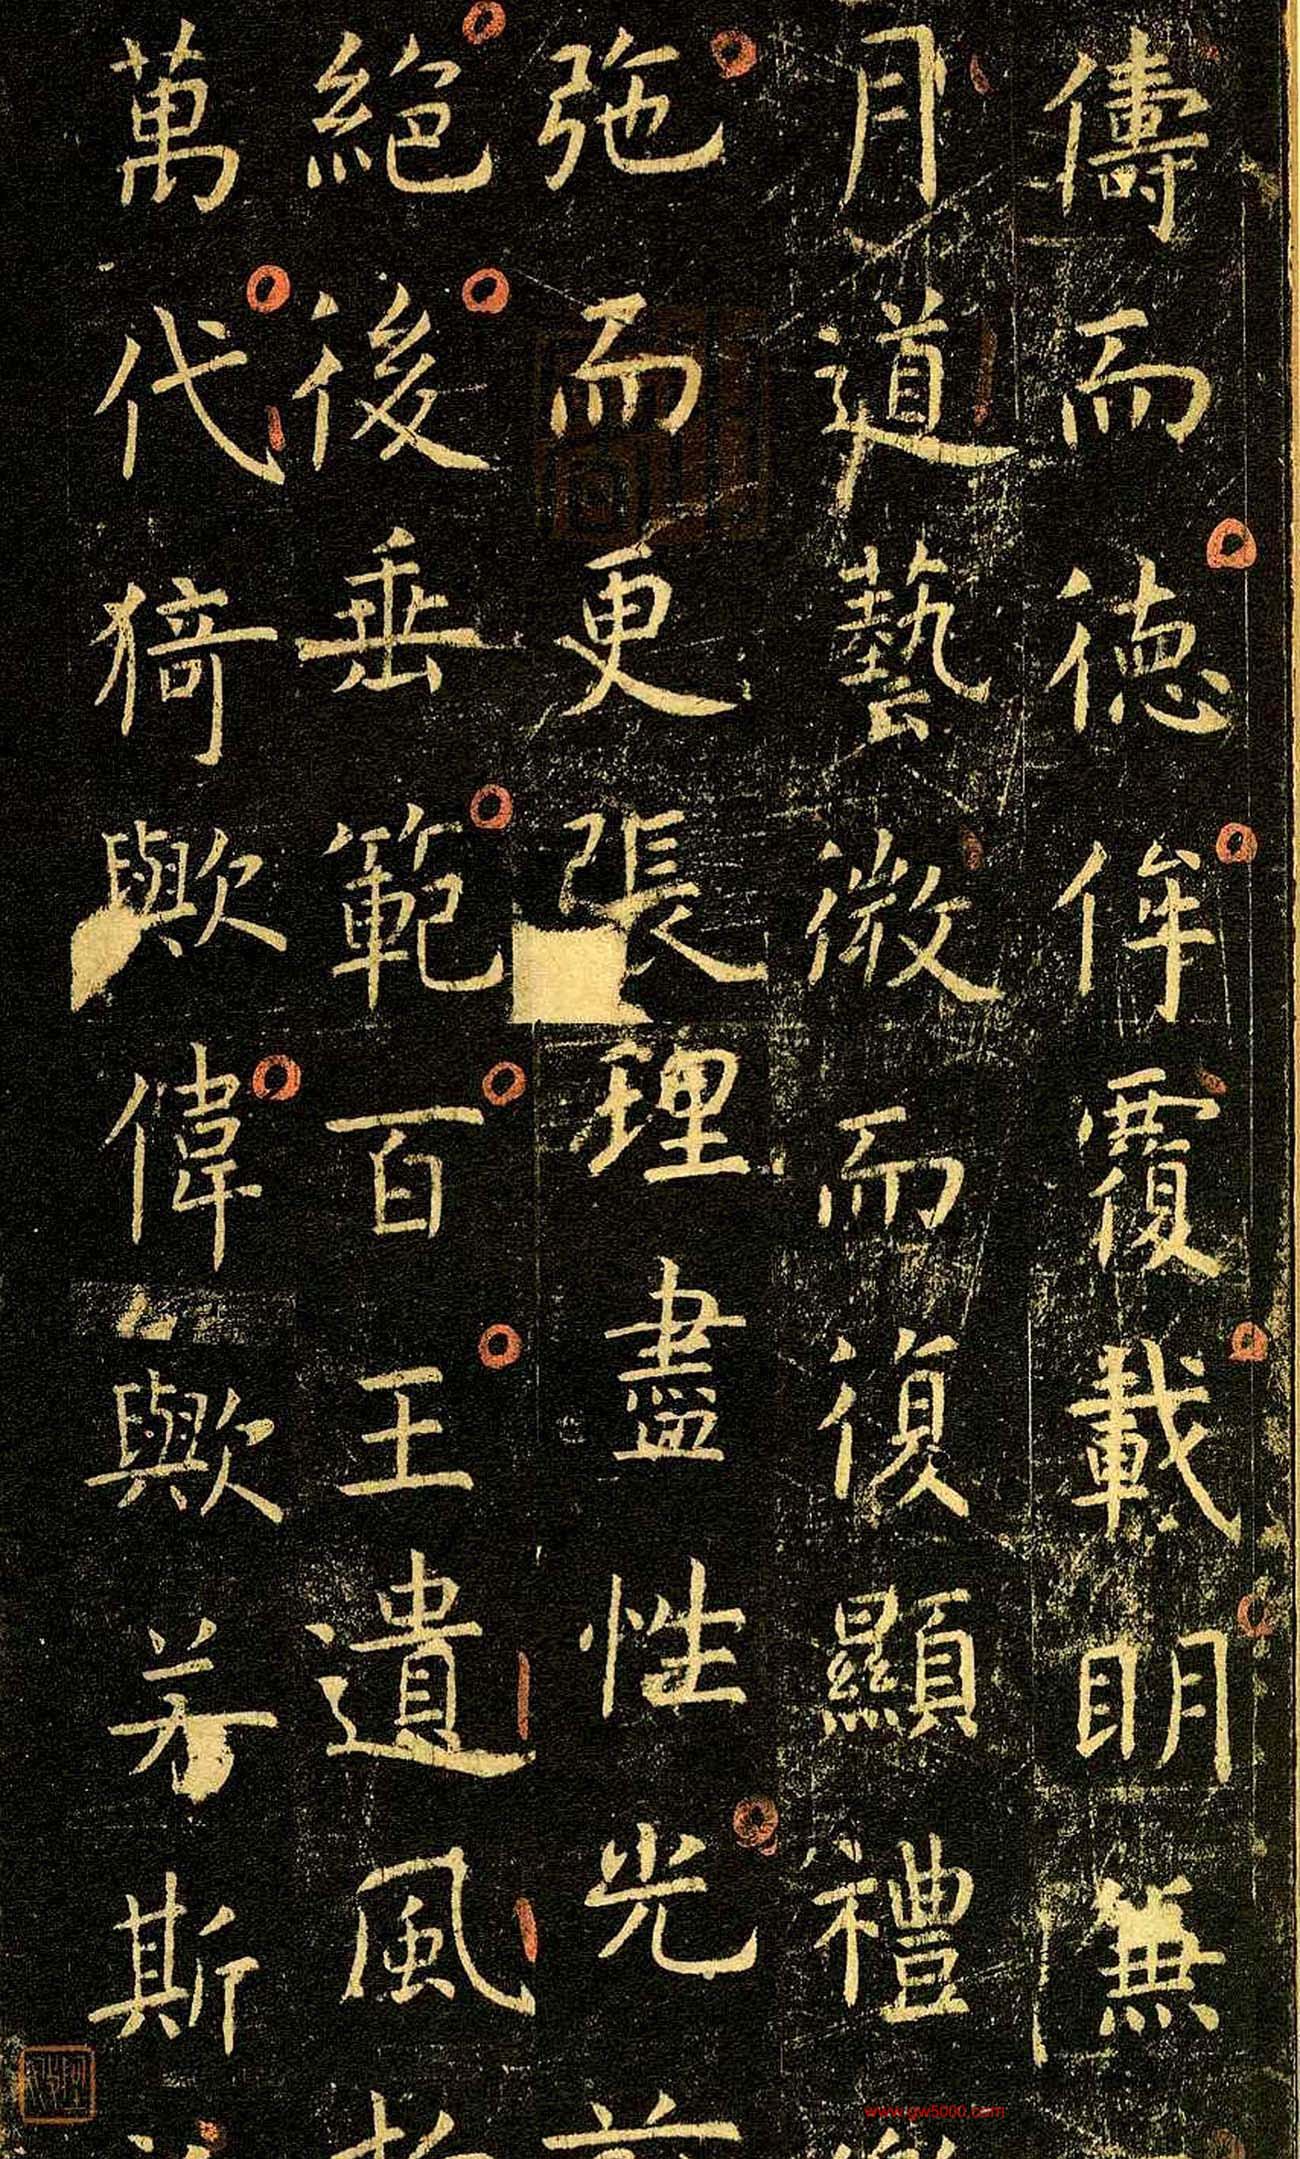 儔而德侔覆載明兼
月道藝微而復顯禮
弛而更張理盡性光
絕後垂範百王遺風
萬代猗歟偉歟若斯
www.gw5000.com